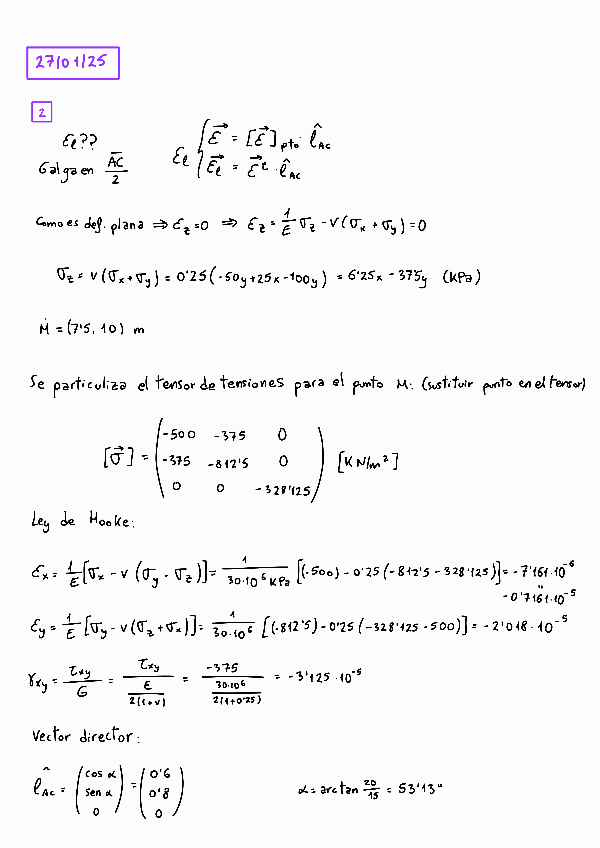 27/01/25
2
εℓ??
Galga en AC/2
εℓ { ε⃗ = [ε⃗]pto · l̂AC
ε⃗ℓ = ε⃗ᵗ · l̂AC
Como es def. plana ⇒ εz = 0 ⇒ εz = 1/E σz - ν(σx + σy) = 0
σz = ν(σx + σy) = 0'25(-50y + 25x - 100y) = 6'25x - 375y (KPa)
M = (7'5, 10) m
Se particuliza el tensor de tensiones para el punto M: (sustituir punto en el tensor)
[σ⃗] = ( -500 -375 0
-375 -812'5 0
0 0 -328'125 ) [KN/m²]
Ley de Hooke:
εx = 1/E [σx - ν(σy - σz)] = 1/(30·10⁶ KPa) [(-500) - 0'25(-812'5 - 328'125)] = -7'161·10⁻⁶
-0'7161·10⁻⁵
εy = 1/E [σy - ν(σz + σx)] = 1/(30·10⁶) [(-812'5) - 0'25(-328'125 - 500)] = -2'018·10⁻⁵
γxy = τxy/G = τxy/(E/(2(1+ν))) = -375/(30·10⁶/(2(1+0'25))) = -3'125·10⁻⁵
Vector director:
l̂AC = (cos α, sen α, 0) = (0'6, 0'8, 0) α = arctan 20/15 = 53'13°